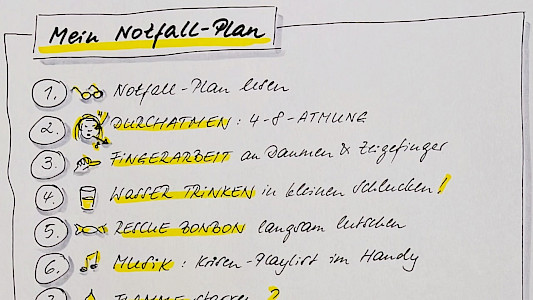 Mein Notfall-Plan
1. Notfall-Plan lesen
2. DURCHATMEN: 4-8-ATMUNG
3. FINGERARBEIT an Daumen & Zeigefinger
4. WASSER TRINKEN in kleinen Schlucken!
5. RESCUE BONBON langsam lutschen
6. MUSIK: Krisen-Playlist im Handy